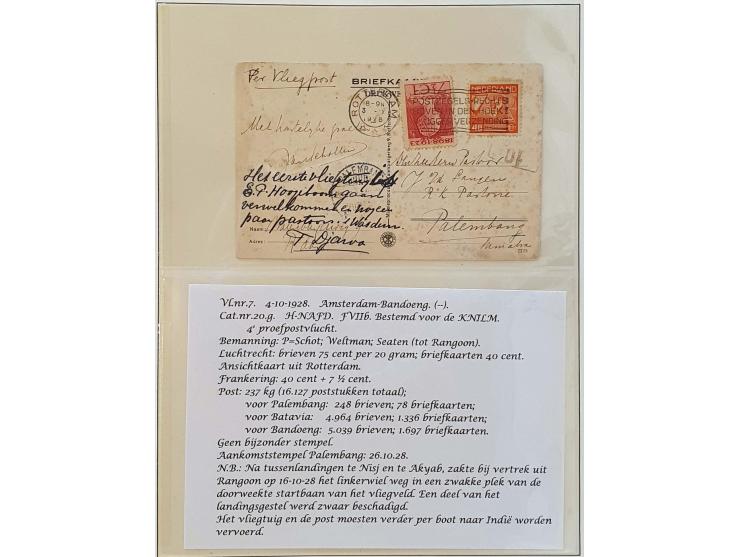 Per Vliegpost
BRIEFKAART
ROTTERDAM
8-9N
3
1928
POSTZEGELS RECHTS
BOVEN IN DEN HOEK
VERZENDING
NEDERLAND
1898-1923
Met hartelijke groet
Pastoor
Het eerste vliegtuig
E.P. Hoogeboom gaan
verwelkomen
paar pastoor Wasdem.
T. Djawa
R.K. Pastorie
Palembang
Sumatra
Naam:
Adres:
Vl.nr.7. 4-10-1928. Amsterdam-Bandoeng. (--).
Cat.nr.20.g. H-NAFD. FVIIb. Bestemd voor de KNILM.
4e proefpostvlucht.
Bemanning: P=Schot; Weltman; Seaten (tot Rangoon).
Luchtrecht: brieven 75 cent per 20 gram; briefkaarten 40 cent.
Ansichtkaart uit Rotterdam.
Frankering: 40 cent + 7 ½ cent.
Post: 237 kg (16.127 poststukken totaal);
voor Palembang: 248 brieven; 78 briefkaarten;
voor Batavia: 4.964 brieven; 1.336 briefkaarten;
voor Bandoeng: 5.039 brieven; 1.697 briefkaarten.
Geen bijzonder stempel.
Aankomststempel Palembang: 26.10.28.
N.B.: Na tussenlandingen te Nisj en te Akyab, zakte bij vertrek uit
Rangoon op 16-10-28 het linkerwiel weg in een zwakke plek van de
doorweekte startbaan van het vliegveld. Een deel van het
landingsgestel werd zwaar beschadigd.
Het vliegtuig en de post moesten verder per boot naar Indië worden
vervoerd.